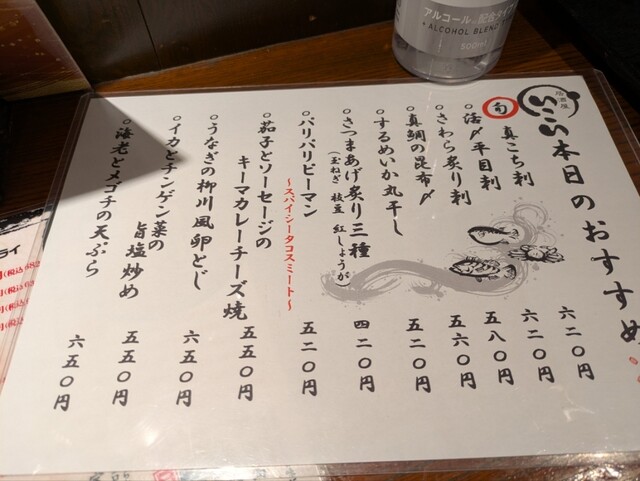 アルコール配合タイプ
ALCOHOL BLEND
500ml
居酒屋
いこい
本日のおすすめ
旬 真こち刺 六二〇円
○活〆平目刺 六二〇円
○さわら炙り刺 五八〇円
○真鯛の昆布〆 五六〇円
○するめいか丸干し 五二〇円
○さつまあげ炙り三種 四二〇円
(玉ねぎ 枝豆 紅しょうが)
○パリパリピーマン 五二〇円
~スパイシータコスミート~
○茄子とソーセージの
キーマカレーチーズ焼 五五〇円
○うなぎの柳川風卵とじ 六五〇円
○イカとチンゲン菜の
旨塩炒め 五五〇円
○海老とメゴチの天ぷら 六五〇円
ライ